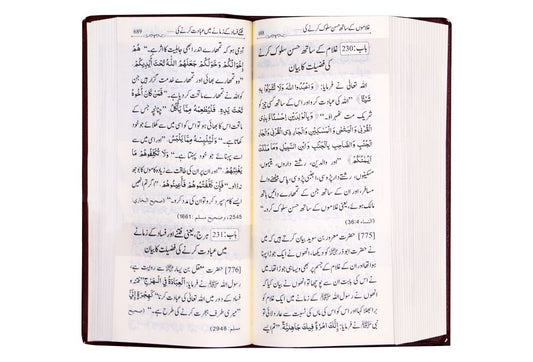 688 غلاموں کے ساتھ حسن سلوک کرنے کی
باب: 230 غلام کے ساتھ حسن سلوک کرنے
کی فضیلت کا بیان
اللہ تعالیٰ نے فرمایا: ﴿وَاعْبُدُوا اللّٰهَ وَلَا تُشْرِكُوا بِهٖ
شَيْـًٔا﴾ "اللہ تعالیٰ کی عبادت کرو اور اس کے ساتھ کسی چیز کو
شریک مت ٹھہراؤ۔" ﴿وَّبِالْوَالِدَيْنِ اِحْسَانًا وَّبِذِى
الْقُرْبٰى وَالْيَتٰمٰى وَالْمَسٰكِيْنِ وَالْجَارِ ذِى الْقُرْبٰى وَالْجَارِ
الْجُنُبِ وَالصَّاحِبِ بِالْجَنْۢبِ وَابْنِ السَّبِيْلِ وَمَا مَلَكَتْ
اَيْمَانُكُمْ﴾ "اور والدین، رشتے داروں، یتیموں،
مسکینوں، رشتے دار پڑوسی، اجنبی پڑوسی، پاس بیٹھنے
والے، مسافر اور ان کے ساتھ جن کے تمھارے ہاتھ
مالک ہیں، یعنی غلاموں کے ساتھ حسن سلوک کرو۔"
(النساء 36:4)
[775] حضرت معرور بن سوید بیان کرتے ہیں کہ
میں نے حضرت ابوذر رضی اللہ عنہ کو دیکھا، انھوں نے ایک جوڑا پہنا
ہوا تھا اور ان کے غلام کے جسم پر بھی ویسا ہی جوڑا تھا۔
میں نے ان سے اس کے بارے میں پوچھا تو انھوں نے بیان کیا کہ
انھوں نے رسول اللہ ﷺ کے زمانے میں ایک غلام کو
گالی دی اور اس کو اس کی ماں کی نسبت سے عار دلائی تو
نبی ﷺ نے فرمایا: "إِنَّكَ امْرُؤٌ فِيكَ جَاهِلِيَّةٌ" "تم ایسے
فتنے فساد کے زمانے میں عبادت کرنے کی 689
آدمی ہو کہ تمھارے اندر ابھی جاہلیت کا اثر ہے۔" هُمْ
إِخْوَانُكُمْ وَخَوَلُكُمْ جَعَلَهُمُ اللّٰهُ تَحْتَ أَيْدِيكُمْ
"وہ تمھارے بھائی اور تمھارے خدمت گزار ہیں جن
کو اللہ نے تمھارے ماتحت کر دیا ہے۔ فَمَنْ كَانَ أَخُوهُ
تَحْتَ يَدِهِ، فَلْيُطْعِمْهُ مِمَّا يَأْكُلُ "چنانچہ جس کے
ماتحت اس کا بھائی ہو تو اس کو اسی میں سے کھلائے جو خود
کھاتا ہے۔" وَلْيُلْبِسْهُ مِمَّا يَلْبَسُ "اور اسی میں سے
اسے پہنائے جو خود پہنتا ہے۔" وَلَا تُكَلِّفُوهُمْ مَا
يَغْلِبُهُمْ "اور ان پر ان کی طاقت سے زیادہ کاموں کا بوجھ نہ
ڈالو۔" فَإِنْ كَلَّفْتُمُوهُمْ فَأَعِينُوهُمْ "اگر تم انھیں
ایسے کام سپرد کرو تو ان کی مدد کرو۔" (صحیح البخاری:
2545، وصحیح مسلم: 1661)
باب: 231 ہرج، یعنی فتنے اور فساد کے زمانے
میں عبادت کرنے کی فضیلت کا بیان
[776] حضرت معقل بن یسار رضی اللہ عنہ سے روایت ہے،
رسول اللہ ﷺ نے فرمایا: "الْعِبَادَةُ فِي الْهَرْجِ" "فتنہ و
فساد کے دور میں اللہ تعالیٰ کی عبادت کرنا" كَهِجْرَةٍ إِلَيَّ
"میری طرف ہجرت کرنے کی طرح ہے۔" (صحیح
مسلم: 2948)